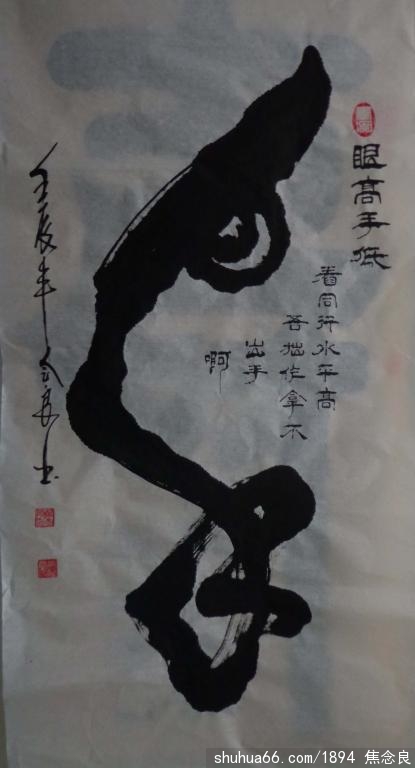 眼高手低
看同行水平高
吾拙作拿不
出手
啊
壬辰年念良书
shuhua66.com/1894 焦念良